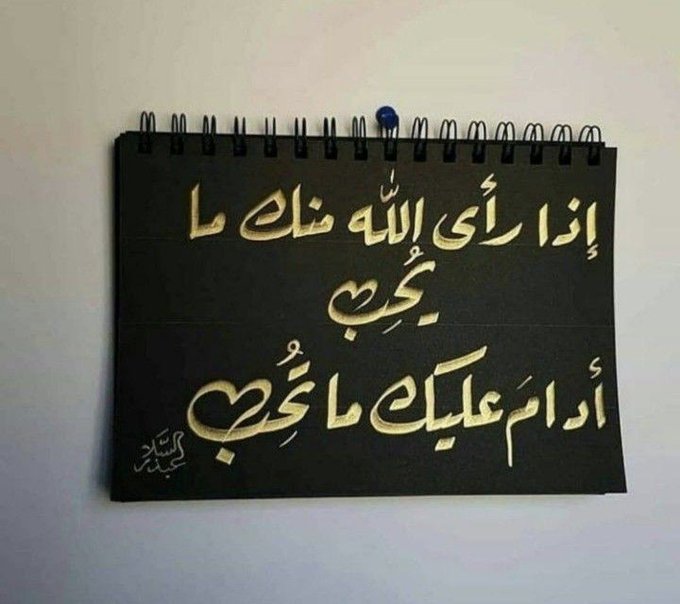 إذا رأى الله منك ما
يُحِب
أدامَ عليك ما تُحِب
عبدالسَّلام